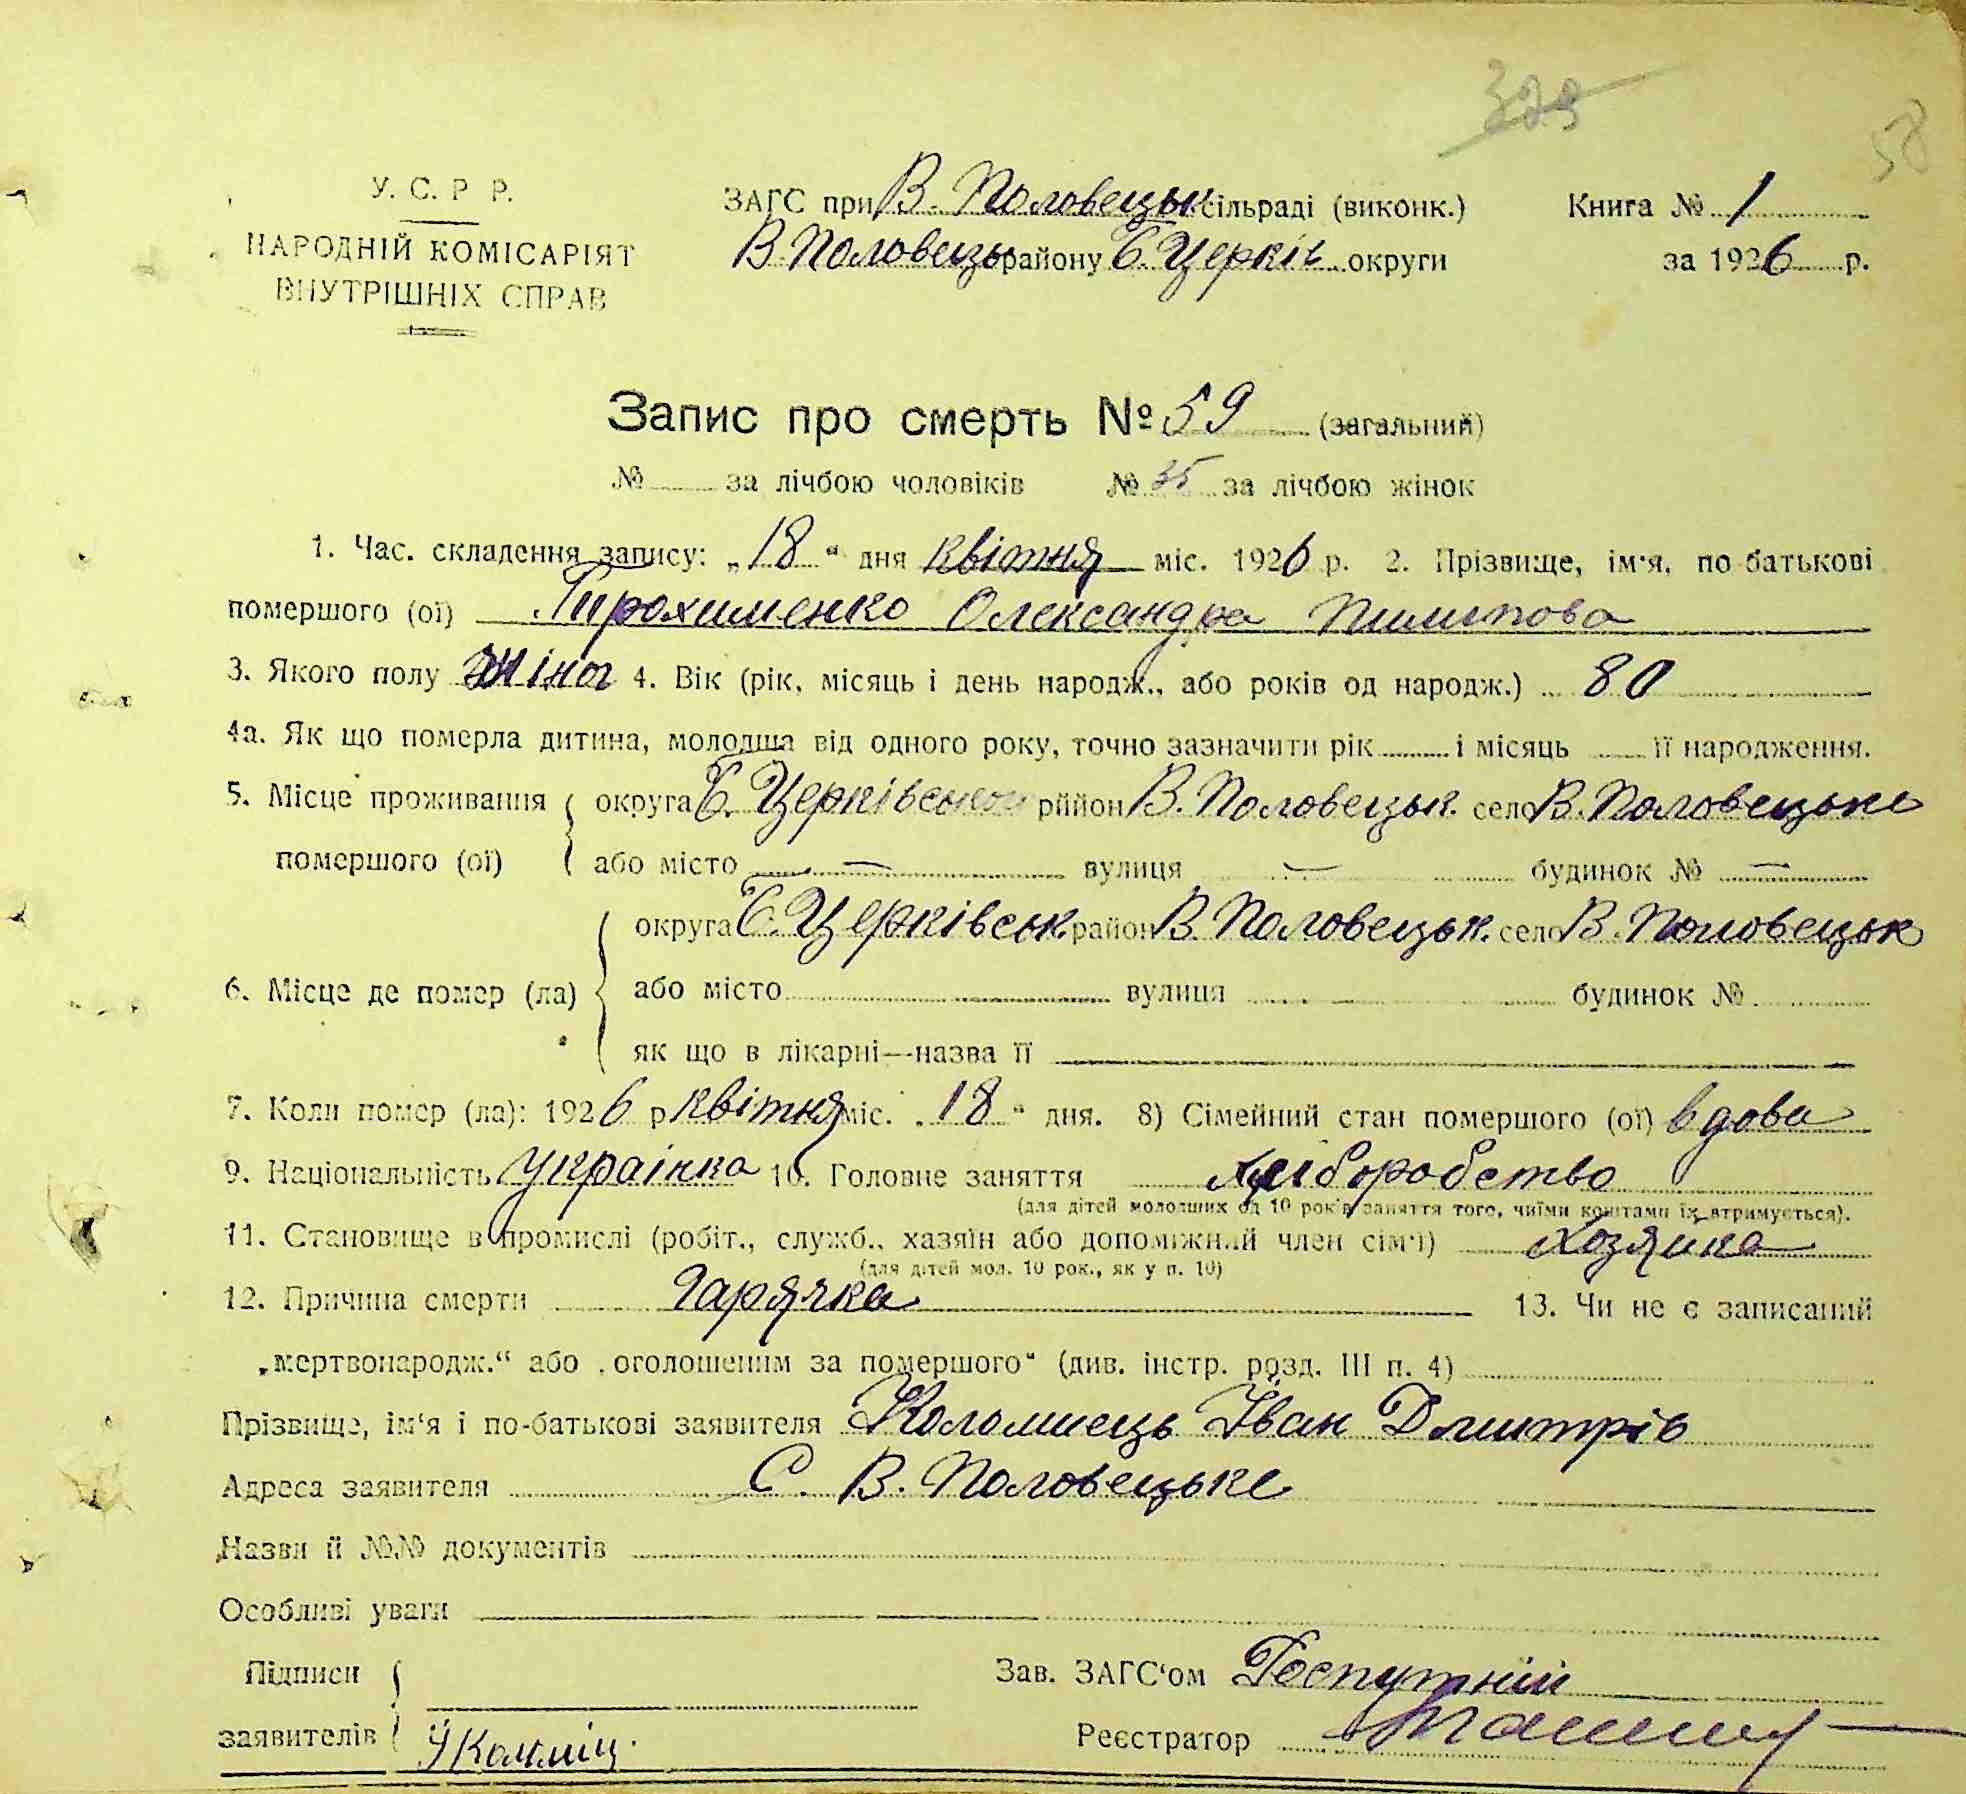 329
58
У. С. Р Р.
НАРОДНІЙ КОМІСАРІЯТ
ВНУТРІШНІХ СПРАВ
ЗАГС при В. Половецьк. сільраді (виконк.)
В. Половецьк району Б. Церків округи
Книга № 1
за 1926 р.
Запис про смерть № 59 (загальний)
№ за лічбою чоловіків № 35 за лічбою жінок
1. Час. складення запису: „18“ дня квітня міс. 1926 р. 2. Прізвище, ім'я, по батькові
помершого (ої) Трохименко Олександра Пилипова
3. Якого полу жіноч 4. Вік (рік, місяць і день народж., або років од народж.) 80
4а. Як що померла дитина, молодша від одного року, точно зазначити рік і місяць її народження.
5. Місце проживання округа Б. Церківської район В. Половецьк. село В. Половецьке
помершого (ої) або місто — вулиця — будинок № —
округа Б. Церківськ. район В. Половецьк. село В. Половецьк
6. Місце де помер (ла) або місто вулиця будинок №
як що в лікарні—назва її
7. Коли помер (ла): 1926 р. квітня міс. „18“ дня. 8) Сімейний стан помершого (ої) вдова
9. Національність українка 10. Головне заняття хліборобство
(для дітей молодших од 10 років заняття того, чиїми коштами їх втримується).
11. Становище в промислі (робіт., служб., хазяїн або допоміжний член сім'ї) хозяйка
(для дітей мол. 10 рок., як у п. 10)
12. Причина смерти Гарячка 13. Чи не є записаний
„мертвонародж.“ або „оголошеним за помершого“ (див. інстр. розд. III п. 4)
Прізвище, ім'я і по-батькові заявителя Коломиець Іван Дмитрів
Адреса заявителя С. В. Половецьке
Назви й №№ документів
Особливі уваги
Підписи
заявителів
Зав. ЗАГС'ом
Реєстратор